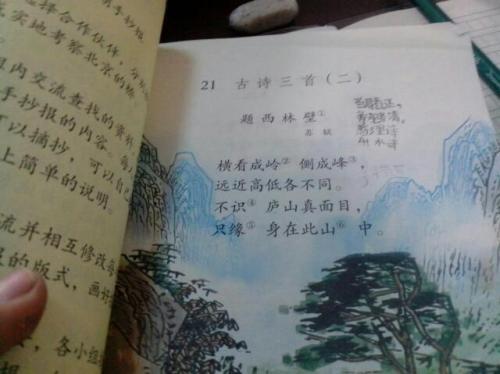 选择合作伙伴，分
实地考察北京的桥
组内交流查找的资料
手抄报的内容。每
可以摘抄，可以自己
上简单的说明。
流并相互修改
的版式，画
，各小组
21 古诗三首（二）
题西林壁①
苏轼
横看成岭②侧成峰③，
远近高低各不同。
不识④庐山真面目，
只缘⑤身在此山⑥中。